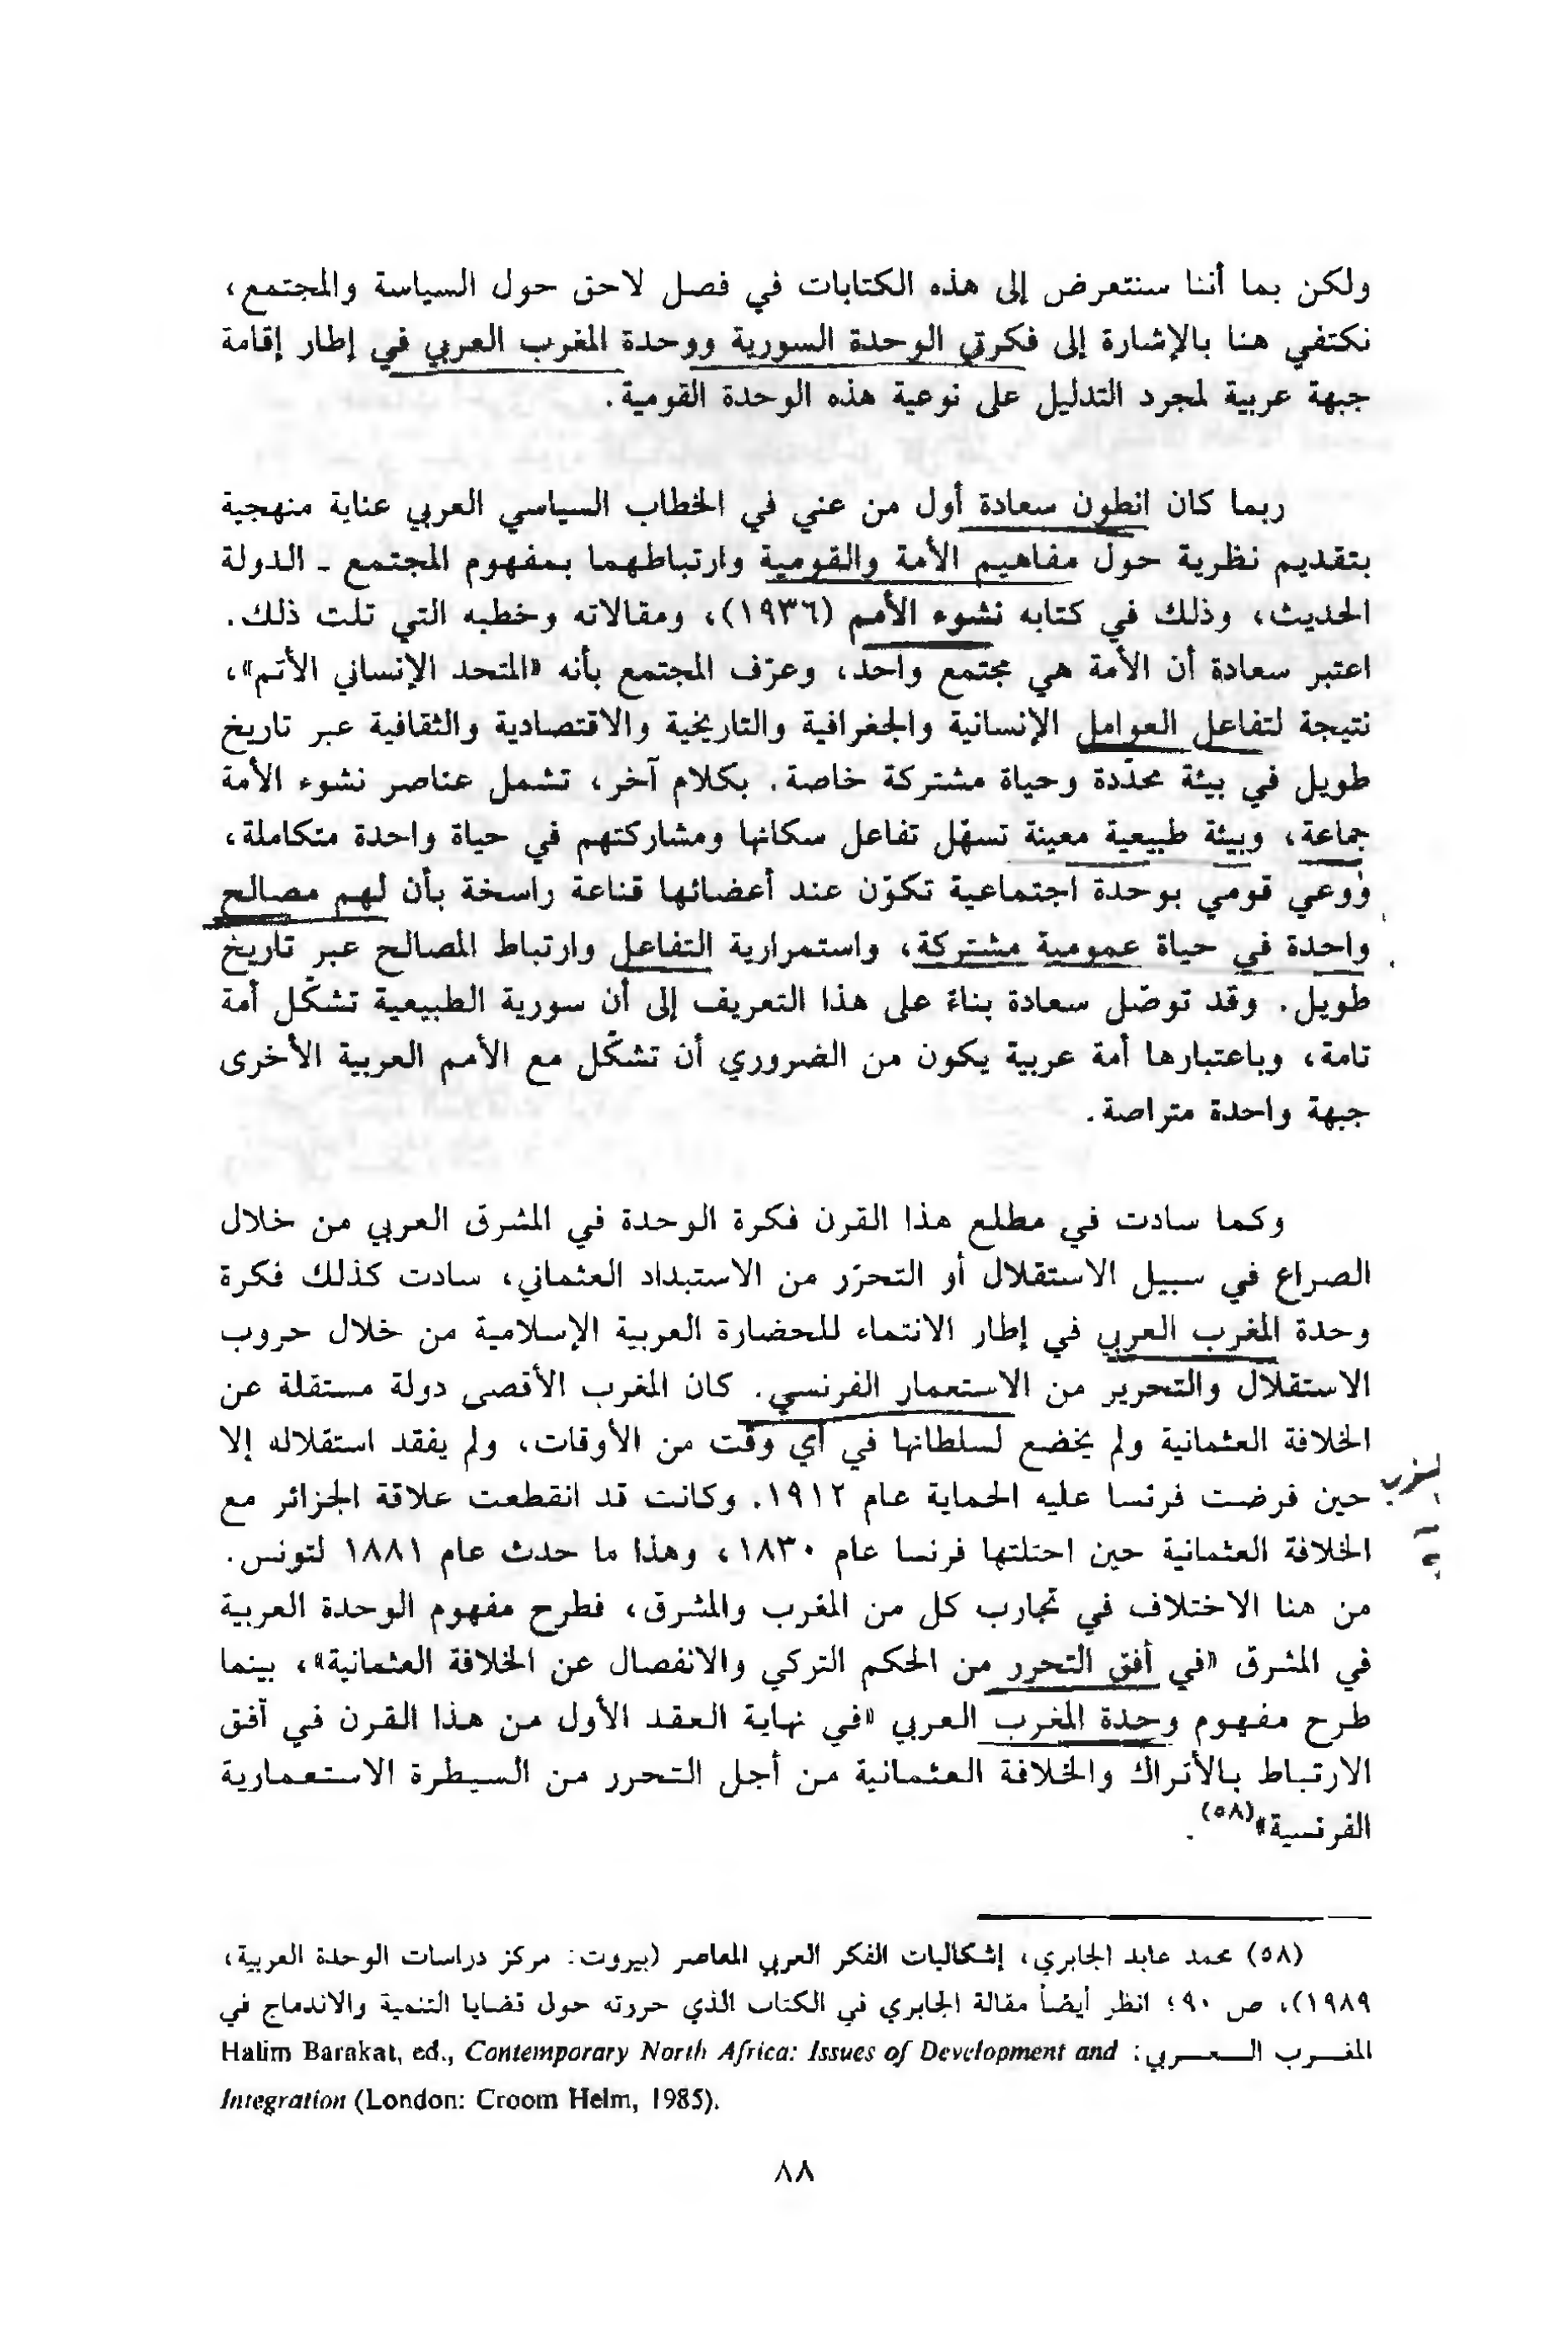 ولكن بما أننا سنتعرض إلى هذه الكتابات في فصل لاحق حول السياسة والمجتمع،
نكتفي هنا بالإشارة إلى فكرتي الوحدة السورية ووحدة المغرب العربي في إطار إقامة
جبهة عربية لمجرد التدليل على نوعية هذه الوحدة القومية.
ربما كان انطون سعادة أول من عني في الخطاب السياسي العربي عناية منهجية
بتقديم نظرية حول مفاهيم الأمة والقومية وارتباطهما بمفهوم المجتمع ـ الدولة
الحديث، وذلك في كتابه نشوء الأمم (١٩٣٦)، ومقالاته وخطبه التي تلت ذلك.
اعتبر سعادة أن الأمة هي مجتمع واحد، وعرّف المجتمع بأنه «المتحد الإنساني الأتم»،
نتيجة لتفاعل العوامل الإنسانية والجغرافية والتاريخية والاقتصادية والثقافية عبر تاريخ
طويل في بيئة محدّدة وحياة مشتركة خاصة. بكلام آخر، تشمل عناصر نشوء الأمة
جماعة، وبيئة طبيعية معينة تسهّل تفاعل سكانها ومشاركتهم في حياة واحدة متكاملة،
ووعي قومي بوحدة اجتماعية تكوّن عند أعضائها قناعة راسخة بأن لهم مصالح
واحدة في حياة عمومية مشتركة، واستمرارية التفاعل وارتباط المصالح عبر تاريخ
طويل. وقد توصّل سعادة بناءً على هذا التعريف إلى أن سورية الطبيعية تشكّل أمة
تامة، وباعتبارها أمة عربية يكون من الضروري أن تشكّل مع الأمم العربية الأخرى
جبهة واحدة متراصة.
وكما سادت في مطلع هذا القرن فكرة الوحدة في المشرق العربي من خلال
الصراع في سبيل الاستقلال أو التحرّر من الاستبداد العثماني، سادت كذلك فكرة
وحدة المغرب العربي في إطار الانتماء للحضارة العربية الإسلامية من خلال حروب
الاستقلال والتحرير من الاستعمار الفرنسي. كان المغرب الأقصى دولة مستقلة عن
الخلافة العثمانية ولم يخضع لسلطانها في أي وقت من الأوقات، ولم يفقد استقلاله إلا
حين فرضت فرنسا عليه الحماية عام ١٩١٢. وكانت قد انقطعت علاقة الجزائر مع
الخلافة العثمانية حين احتلتها فرنسا عام ١٨٣٠، وهذا ما حدث عام ١٨٨١ لتونس.
من هنا الاختلاف في تجارب كل من المغرب والمشرق، فطرح مفهوم الوحدة العربية
في المشرق «في أفق التحرر من الحكم التركي والانفصال عن الخلافة العثمانية»، بينما
طرح مفهوم وحدة المغرب العربي «في نهاية العقد الأول من هذا القرن في آفق
الارتباط بالأتراك والخلافة العثمانية من أجل التحرر من السيطرة الاستعمارية
الفرنسية»(٥٨).
(٥٨) محمد عابد الجابري، إشكاليات الفكر العربي المعاصر (بيروت: مركز دراسات الوحدة العربية،
١٩٨٩)، ص ٩٠؛ انظر أيضاً مقالة الجابري في الكتاب الذي حررته حول قضايا التنمية والاندماج في
المغرب العربي: Halim Barakat, ed., Contemporary North Africa: Issues of Development and
Integration (London: Croom Helm, 1985).
٨٨